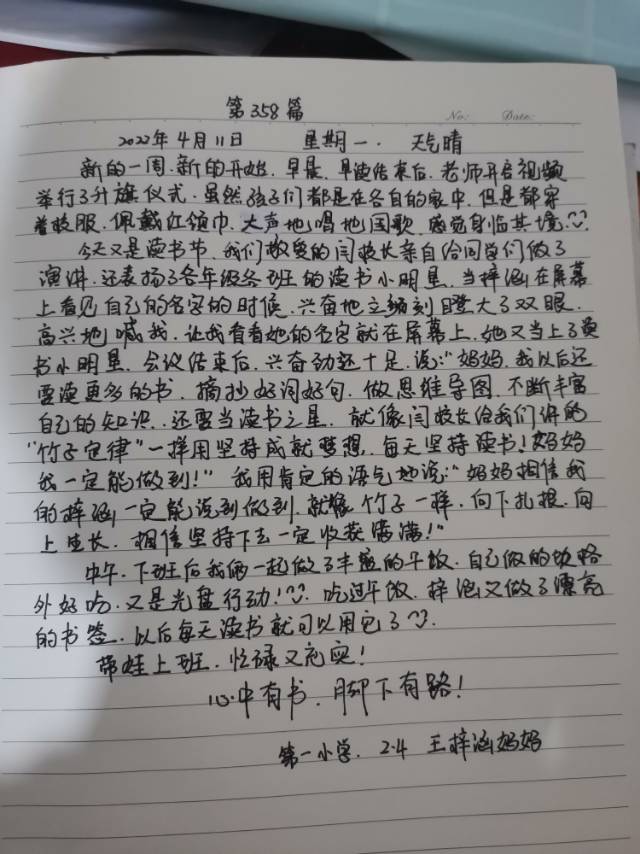 第358篇
No: Date:
2022年4月11日 星期一. 天气晴
新的一周.新的开始.早晨.早读结束后.老师开启视频
举行了升旗仪式.虽然孩子们都是在各自的家中.但是都穿
着校服.佩戴红领巾.大声地唱地国歌.感觉身临其境.
今天又是读书节.我们敬爱的闫校长亲自给同学们做了
演讲.还表扬了各年级各班的读书小明星.当梓涵在屏幕
上看见自己的名字的时候.兴奋地立刻瞪大了双眼.
高兴地喊我.让我看看她的名字就在屏幕上.她又当上了读
书小明星.会议结束后.兴奋劲还十足.说:"妈妈.我以后还
要读更多的书.摘抄好词好句.做思维导图.不断丰富
自己的知识.还要当读书之星.就像闫校长给我们讲的
"竹子定律"一样用坚持成就梦想.每天坚持读书!妈妈
我一定能做到!"我用肯定的语气地说:"妈妈相信我
的梓涵一定能说到做到.就像竹子一样.向下扎根.向
上生长.相信坚持下去一定收获满满!"
中午.下班后我俩一起做了丰盛的午饭.自己做的饭格
外好吃.又是光盘行动!吃过午饭.梓涵又做了漂亮
的书签.以后每天读书就可以用它了.
带娃上班.忙碌又充实!
心中有书.脚下有路!
第一小学. 2.4 王梓涵妈妈